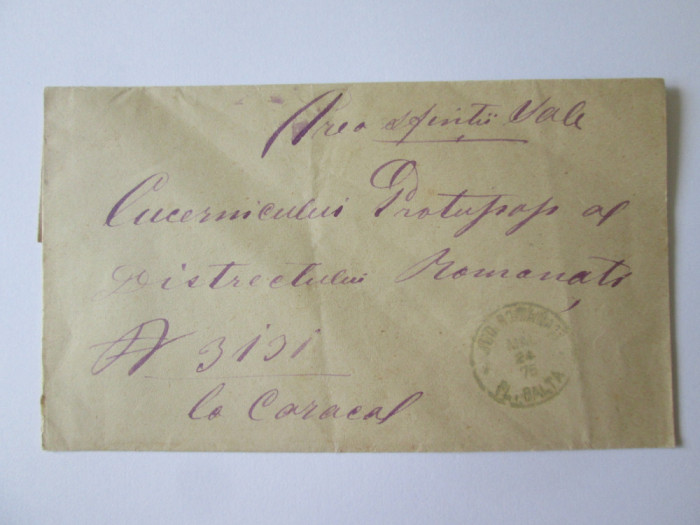 Preo sfintii Sale
Cucernicului Protopop al
Districtului Romanați
3191
la Caracal
JUD. ROMANATI
24
76
BALTA